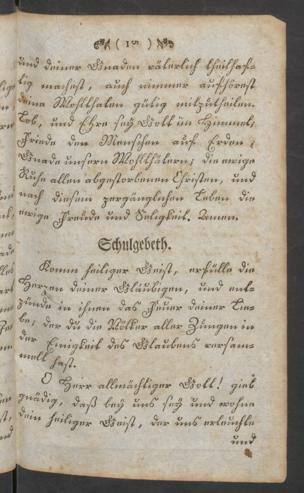 ( 15 )
und deiner Gnaden väterlich theilhaf-
tig machest, auch nimmer aufhörest
deine Wohlthaten gütig mitzutheilen.
Lob, und Ehre sey Gott im Himmel,
Friede den Menschen auf Erden,
Gnade unsern Wohlthätern; die ewige
Ruhe allen abgestorbenen Christen, und
nach diesem zergänglichen Leben die
ewige Freude und Seligkeit. Amen.
Schulgebeth.
Komm heiliger Geist, erfülle die
Herzen deiner Gläubigen, und ent-
zünde in ihnen das Feuer deiner Lie-
be, der du die Völker aller Zungen in
der Einigkeit des Glaubens versam-
melt hast.
O Herr allmächtiger Gott! gieb
gnädig, daß bey uns sey und wohne
dein heiliger Geist, der uns erleuchte
und